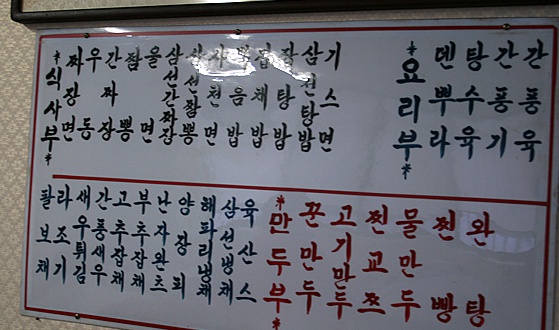 *식사부*
짜장면
우동
간짜장
짬뽕
울면
삼선간짜장
삼선짬뽕
사천면
볶음밥
잡채밥
삼선탕밥
기스면
*요리부*
덴뿌라
탕수육
간풍기
간풍육
팔보채
라조기
새우튀김
간풍새우
고추잡채
부추잡채
난자완츠
양장피
해파리냉채
삼선냉채
육산스
*만두부*
꾼만두
고기만두
찐교쯔
물만두
찐빵
완탕